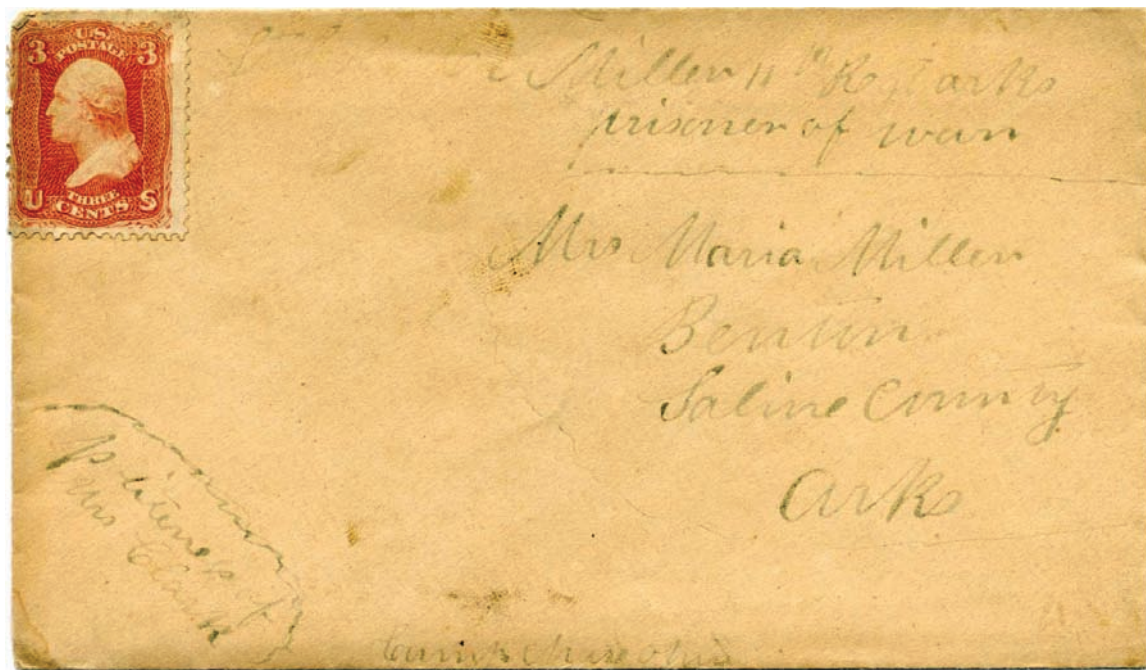 U.S.
POSTAGE
3 3
THREE
CENTS
U S
Miller 11th Regt Arks
prisoner of warr
Mrs Maria Miller
Benton
Saline County
Arks
politeness of
Mrs Clark
Camp Chase Ohio